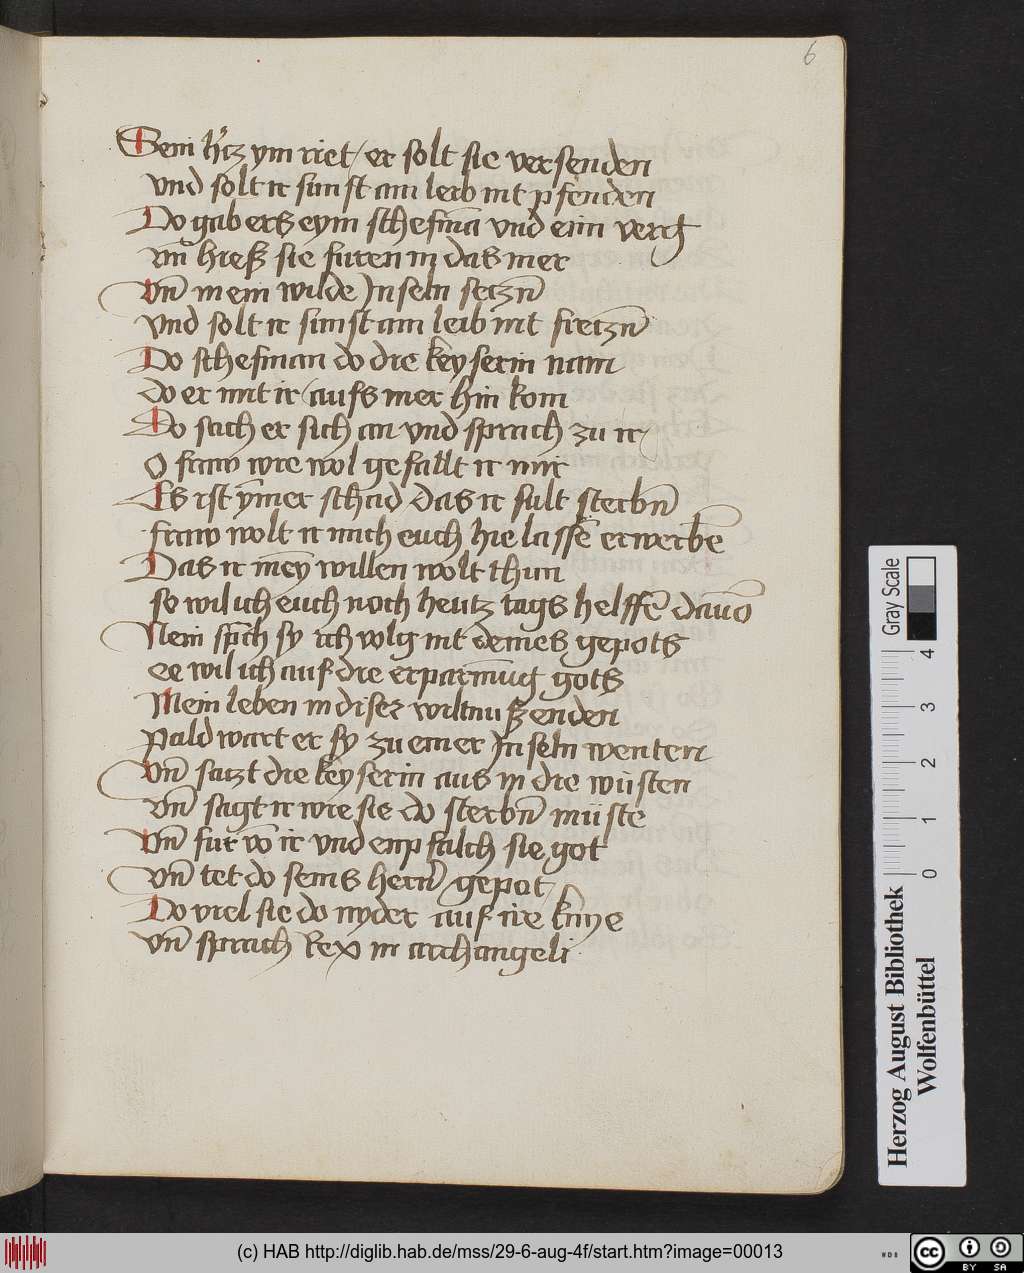 6
Sein h'cz ym riet / er solt sie versenden
vnd solt ir sunst am leib nit pfenden
Do gab ers eym schefmā vnd eim verg
vn̄ hieß sie furen in das mer
Vn̄ in ein wilde Inseln seczn̄
vnd solt ir sunst am leib nit freczn̄
Do schefman do die keyserin nam
do er mit ir / aufs mer hin kom
Do sach er sich an vnd sprach zu ir /
O fraw wie wol gefallt ir mir
Es ist ymer schad das ir sult sterbn̄
fraw wolt ir mich euch hie lassē erwerbē
Das ir mey willen wolt thun
so wil ich euch noch heutz tags helffē dauō
Nein sp̄ch sy ich volg nit deines gepots
ee wil ich auf die erparmūg gots
Mein leben in diser wiltnuß enden
Pald wart er sy zu einer Inseln wenten
Vn̄ saczt die keyserin aus in die wüsten
vn̄ sagt ir wie sie do sterbn̄ müste
Vn̄ fur vō ir vnd enpfalch sie got
vn̄ tet do seins hern̄ gepot /
Do viel sie do nyder auf ire knỹe
vn̄ sprach Rex in archangeli
Gray Scale
0 1 2 3 4
Herzog August Bibliothek
Wolfenbüttel
(c) HAB http://diglib.hab.de/mss/29-6-aug-4f/start.htm?image=00013
WDB
cc BY SA